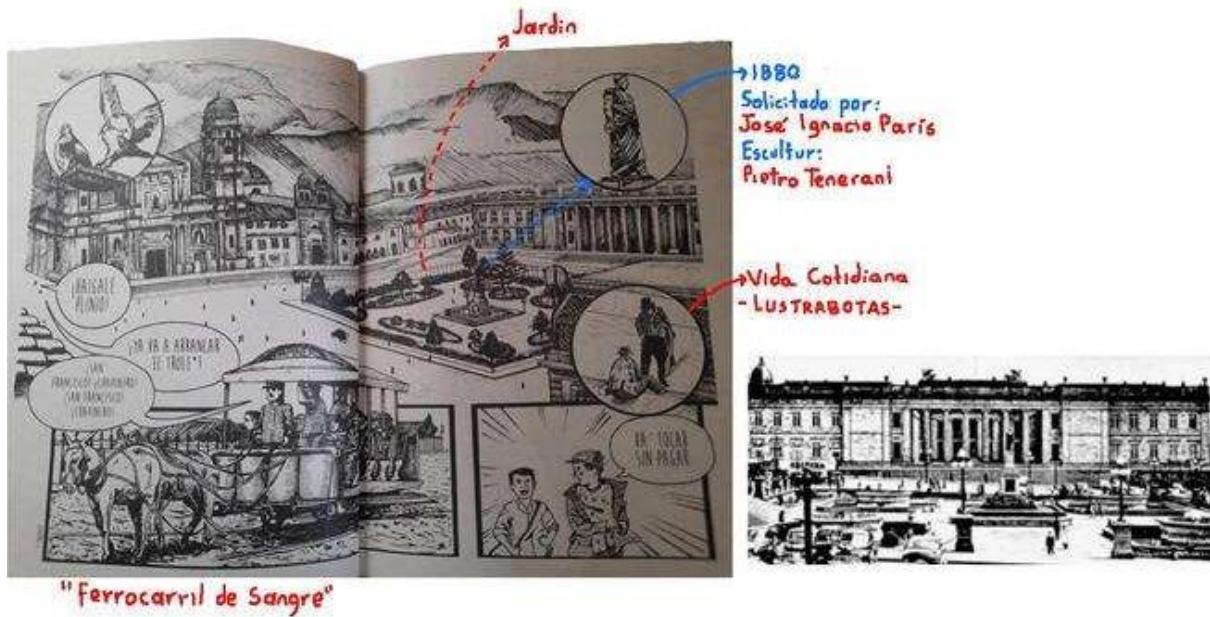 Jardin
1880
Solicitado por:
José Ignacio París
Escultur:
Pietro Tenerani
Vida Cotidiana
-LUSTRABOTAS-
¡BRÍGALE
PLINIO!
¡YA VA A ARRANCAR
EL TROLE*!
¡SAN
FRANCISCO!
¡SAN FRANCISCO!
VA'TOCAR
SIN PAGAR
"Ferrocarril de Sangre"